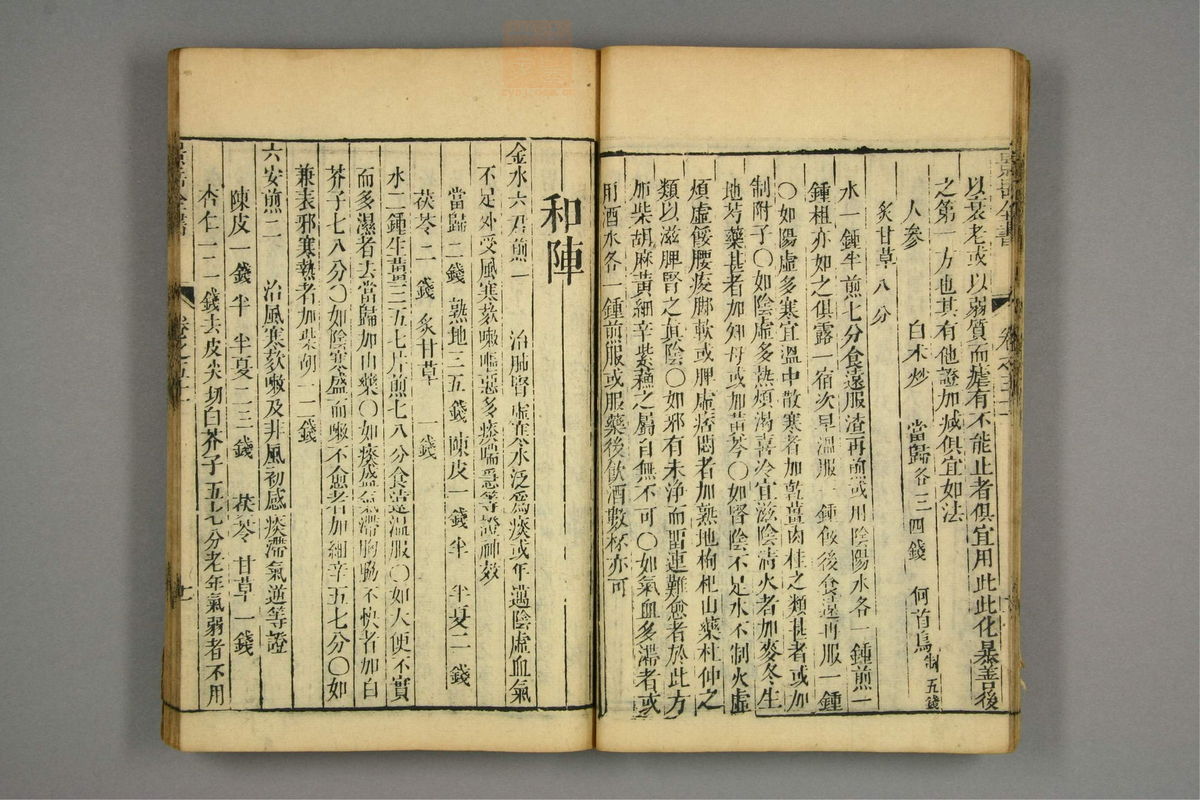 以衰老或以弱質而瘧有不能止者俱宜用此此化暴善後
之第一方也其有他證加減俱宜如法
人參　白术炒　當歸各三四錢　何首烏制五錢
炙甘草八分
水一鍾半煎七分食遠服渣再煎或用陰陽水各一鍾煎一
鍾柤亦如之俱露一宿次早溫服一鍾飯後食遠再服一鍾
○如陽虛多寒宜溫中散寒者加乾薑肉桂之類甚者或加
制附子○如陰虛多熱煩渴喜冷宜滋陰清火者加麥冬生
地芍藥甚者加知母或加黃芩○如腎陰不足水不制火虛
煩虛餒腰痠脚軟或脾虛痞悶者加熟地枸杞山藥杜仲之
類以滋脾腎之真陰○如邪有未淨而畱連難愈者於此方
加柴胡麻黃細辛紫蘇之屬自無不可○如氣血多滯者或
用酒水各一鍾煎服或服藥後飲酒數杯亦可
和陣
金水六君煎一　治肺腎虛寒水泛爲痰或年邁陰虛血氣
不足外受風寒欬嗽嘔惡多痰喘急等證神效
當歸二錢　熟地三五錢　陳皮一錢半　半夏二錢
茯苓二錢　炙甘草一錢
水二鍾生薑三五七片煎七八分食遠溫服○如大便不實
而多濕者去當歸加山藥○如痰盛氣滯胸脇不快者加白
芥子七八分○如陰寒盛而嗽不愈者加細辛五七分○如
兼表邪寒熱者加柴胡一二錢
六安煎二　治風寒欬嗽及非風初感痰滯氣逆等證
陳皮一錢半　半夏二三錢　茯苓　甘草一錢
杏仁一二錢去皮尖切　白芥子五七分老年氣弱者不用